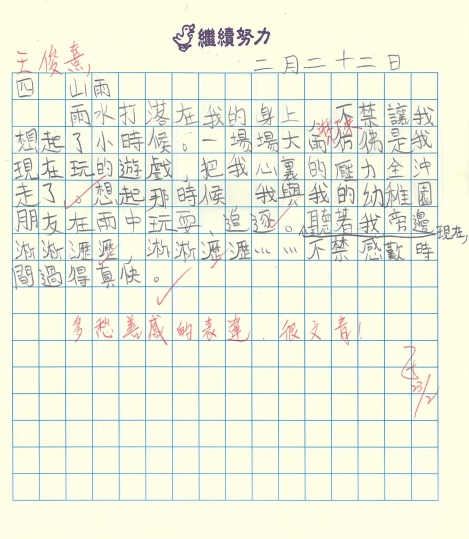 繼續努力
王俊熹
二月二十二日
四 山雨
雨水打落在我的身上,不禁讓我
想起了小時候。一場場大雨彷彿是我
現在玩的遊戲,把我心裏的壓力全沖
走了。想起那時候,我與我的幼稚園
朋友在雨中玩耍、追逐。聽著我旁邊現在,
淅淅瀝瀝,淅淅瀝瀝……不禁感歎時
間過得真快。
多愁善感的表達,很文青!
23/2